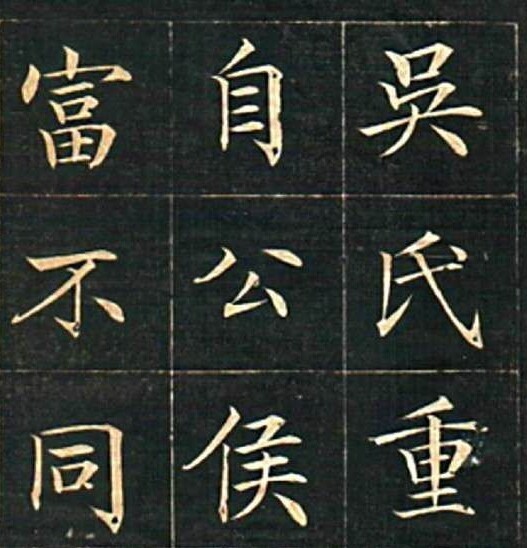 吳氏重
自公侯
富不同